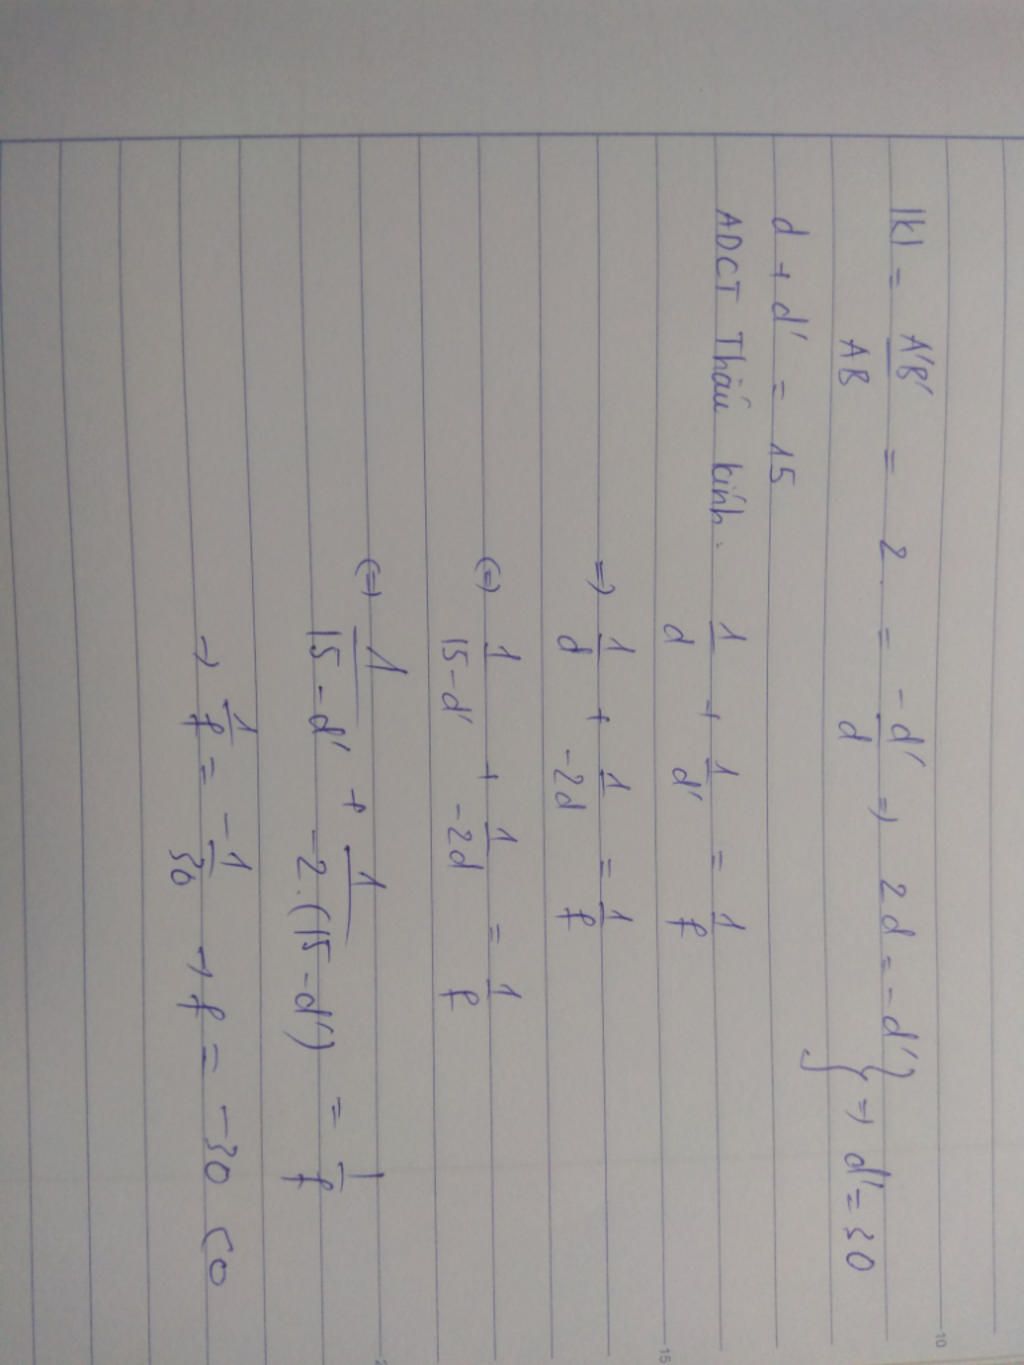 |k| = A'B'/AB = 2 = -d'/d => 2d = -d'
d + d' = 15 } => d' = 30
ADCT Thấu kính. 1/d + 1/d' = 1/f
=> 1/d + 1/-2d = 1/f
(=) 1/15-d' + 1/-2d = 1/f
(=) 1/15-d' + 1/-2.(15-d') = 1/f
→ 1/f = -1/30 → f = -30 < 0
10
15